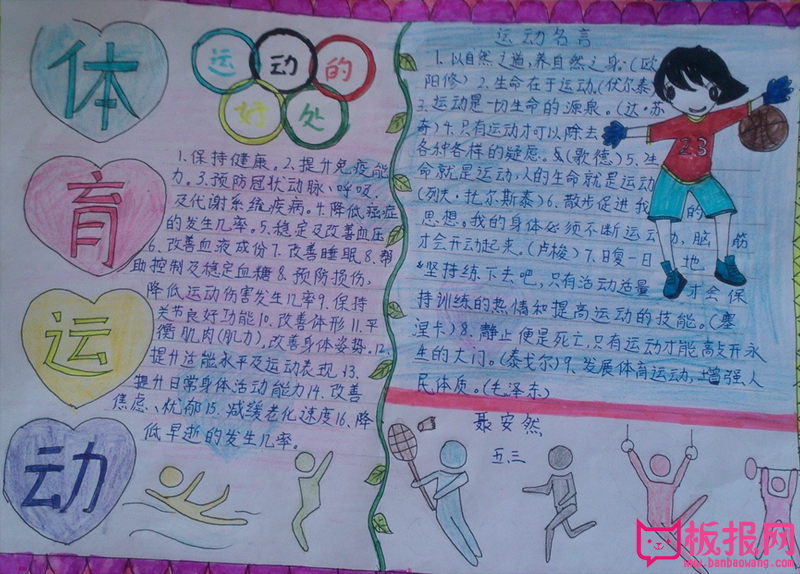 体
育
运
动
运动的
好处
1.保持健康。2.提升免疫能
力。3.预防冠状动脉、呼吸
及代谢系统疾病。4.降低癌症
的发生几率。5.稳定及改善血压
6.改善血液成份7.改善睡眠.8.帮
助控制及稳定血糖8.预防损伤,
降低运动伤害发生几率9.保持
关节良好功能10.改善体形11.平
衡肌肉(肌力),改善身体姿势.12.
提升活能水平及运动表现13.
提升日常身体活动能力14.改善
焦虑、忧郁15.减缓老化速度16.降
低早逝的发生几率。
运动名言
1.以自然之道,养自然之身.(欧
阳修)2.生命在于运动.(伏尔泰)
3.运动是一切生命的源泉。(达·芬
奇)4.只有运动才可以除去
各种各样的疑虑。(歌德)5.生
命就是运动,人的生命就是运动
(列夫·托尔斯泰)6.散步促进我的
思想。我的身体必须不断运动,脑筋
才会开动起来.(卢梭)7.日复一日地
坚持练下去吧,只有活动适量才会保
持训练的热情和提高运动的技能。(塞
涅卡)8.静止便是死亡,只有运动才能敲开永
生的大门。(泰戈尔)9.发展体育运动,增强人
民体质。(毛泽东)
23
聂安然
五.三
板报网
www.banbaowang.com